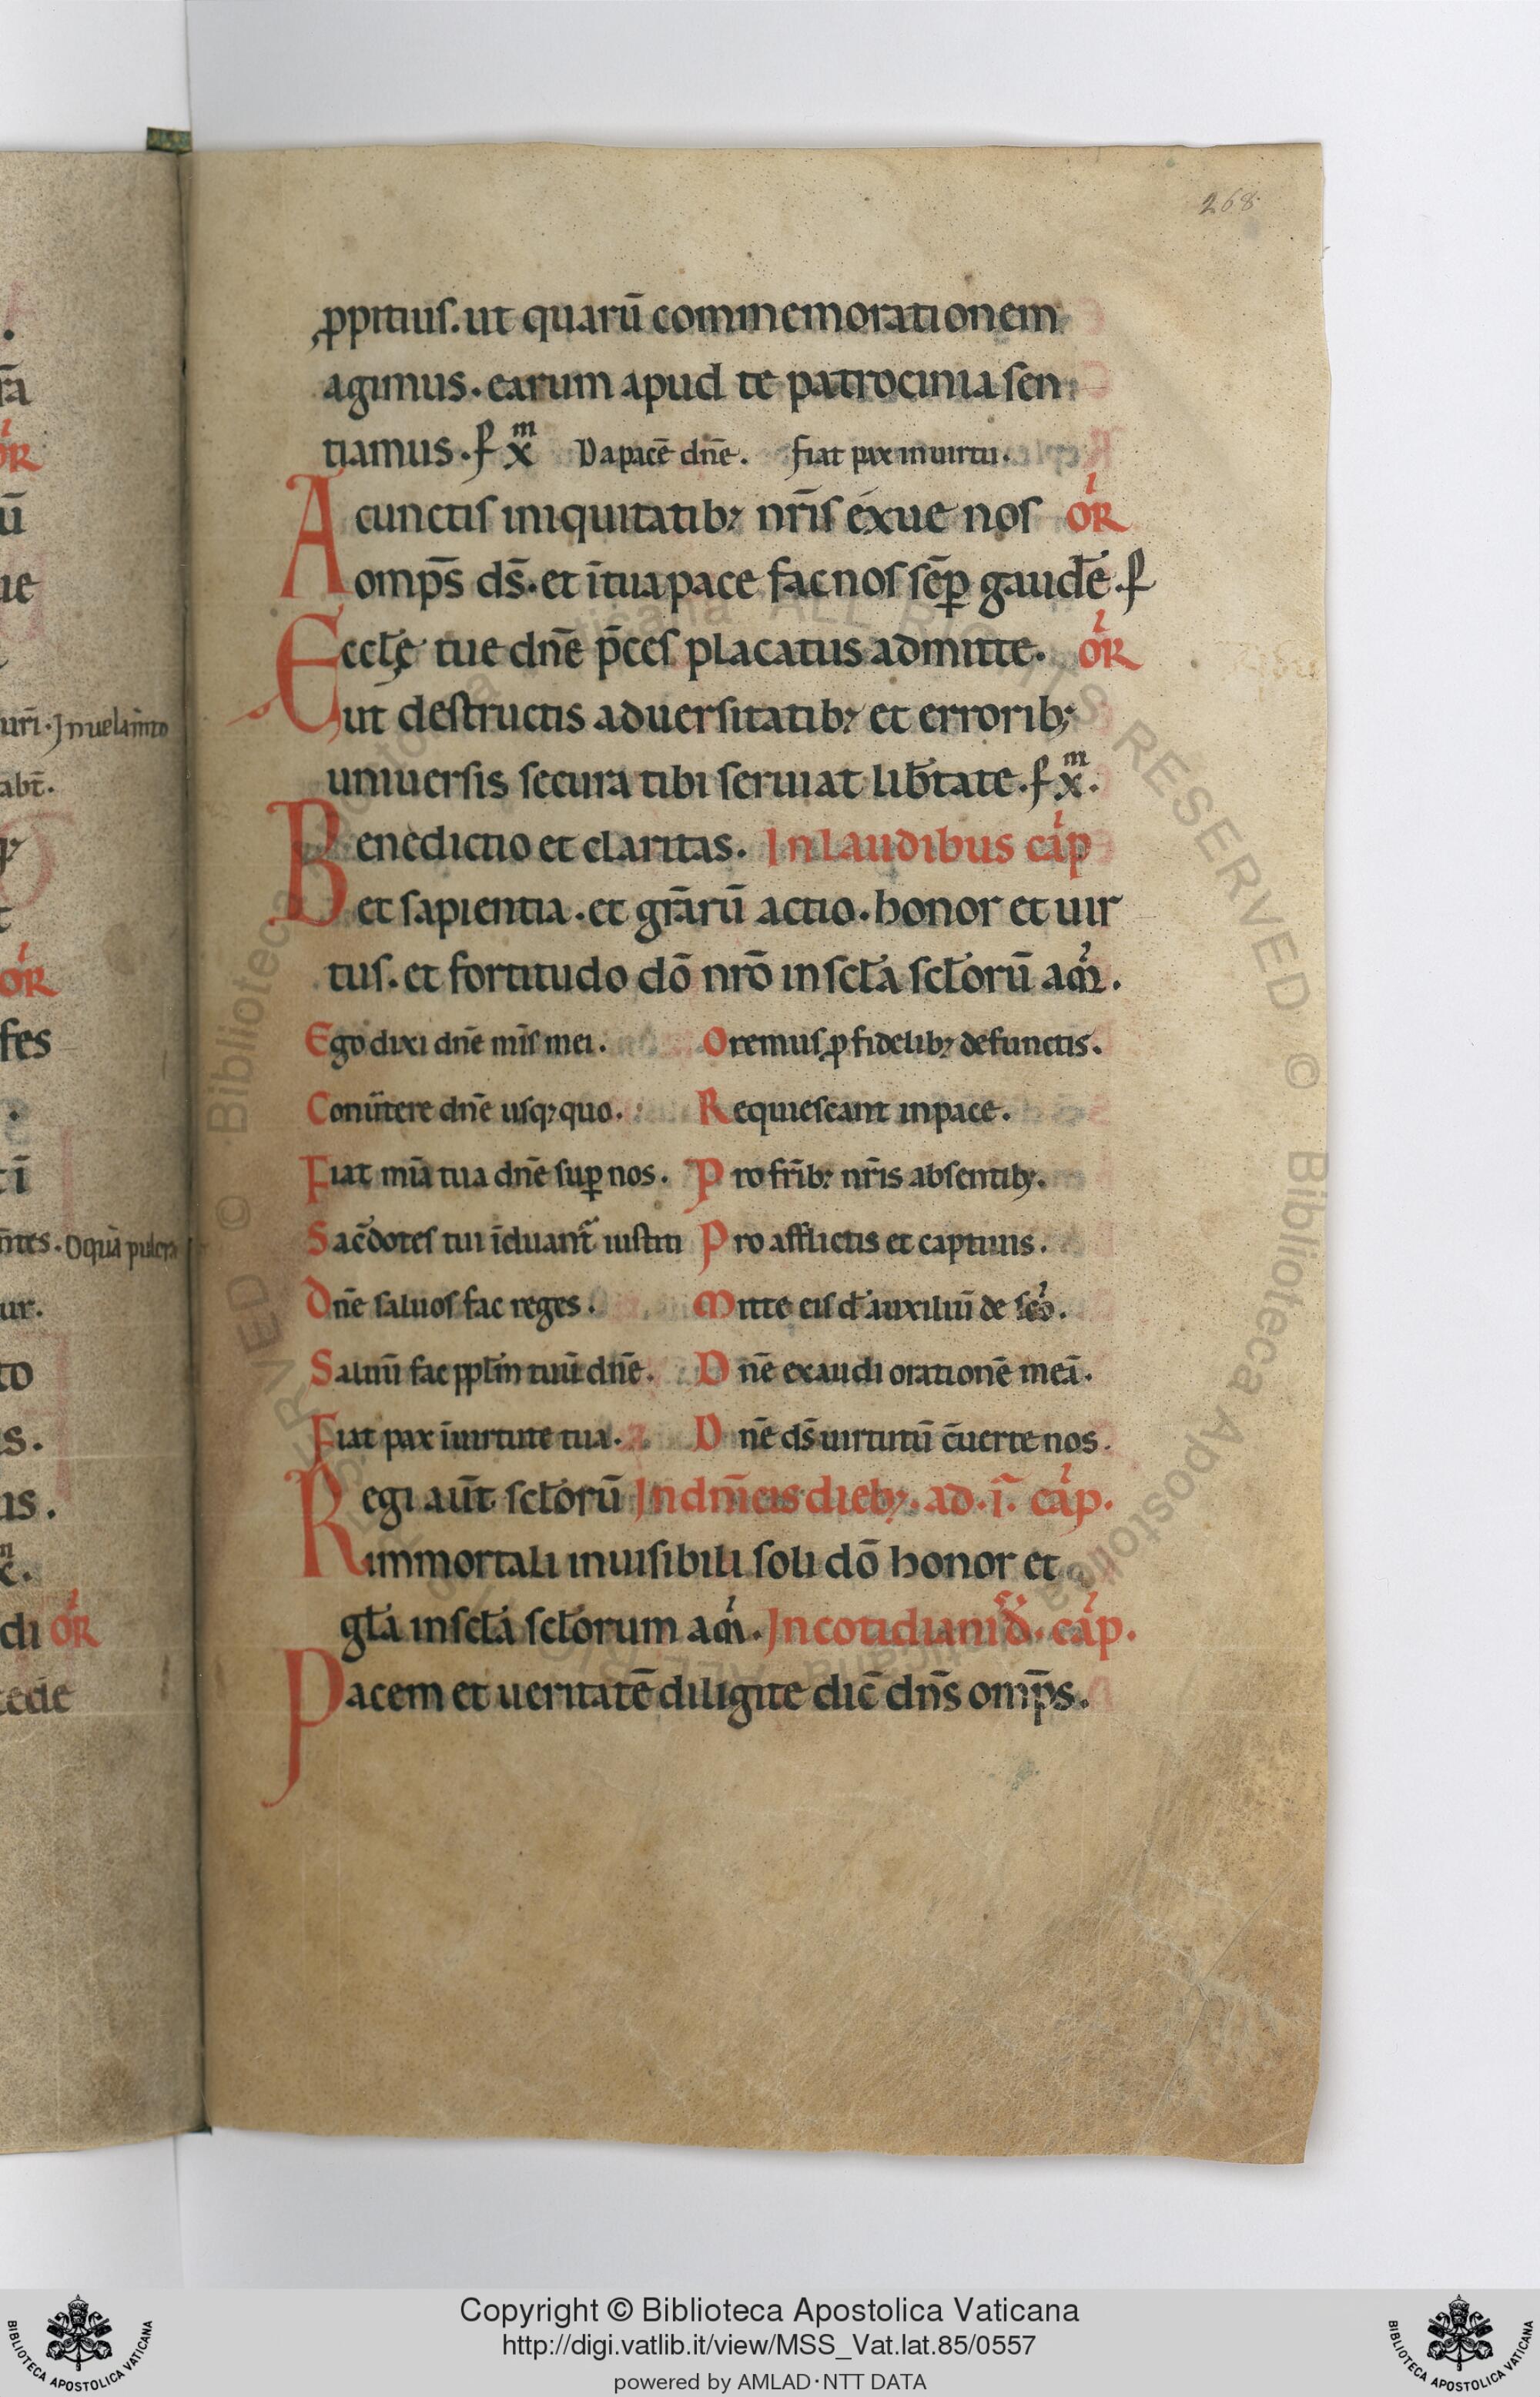 268
ꝓpitius. ut quarū commemorationem
agimus. earum apud te patrocinia sen
tiamus. ꝑ xͫ Da pacē dn̄e. fiat pax inuirtu.
A cunctis iniquitatib; nr̄is éxue nos oR̄
omp̄s ds̄. et ītua pace fac nos sēꝑ gaudē. ꝑ
Eccłę tue dn̄e p̄ces placatus admitte. oR̄
ut destructis aduersitatib; et errorib;
uniuersis secura tibi seruiat lib̄tate. ꝑ xͫ.
Benedictio et claritas. In laudibus cap̄
et sapientia. et gr̄arū actio. honor et uir
tus. et fortitudo dō nrō in scła scłorū am̄.
Ego dixi dn̄e mīs mei. Oremus ꝓ fidelib; defunctis.
Conūtere dn̄e usq; quo. Requiescant inpace.
Fiat mīa tua dn̄e suꝑ nos. Pro fr̄ib; nr̄is absentib;.
Sac̄dotes tui īduant̄ iustiti Pro afflictis et captiuis.
Dn̄e saluos fac reges. Mitte eis d̄ auxiliū de sc̄o.
Saluū fac ppłm tuū dn̄e. Dn̄e exaudi orationē meā.
Fiat pax īuirtute tua. Dn̄e ds̄ uirtutū c̄uerte nos.
Regi aūt scłorū In dn̄icis dieb;. ad. ī. cap̄.
immortali inuisibili soli dō honor et
gła in scła scłorum am̄. In cotidianis d̄. cap̄.
Pacem et ueritatē diligite dic̄ dn̄s omp̄s.
rā
oR̄
ū
ue
uri. In uelam̄to
abt̄.
q;
oR̄
fes
ti
m̄tes. O quā pulcra
ur.
to
s.
us.
di oR̄
cede
Copyright © Biblioteca Apostolica Vaticana
http://digi.vatlib.it/view/MSS_Vat.lat.85/0557
powered by AMLAD·NTT DATA
BIBLIOTECA APOSTOLICA VATICANA
BIBLIOTECA APOSTOLICA VATICANA